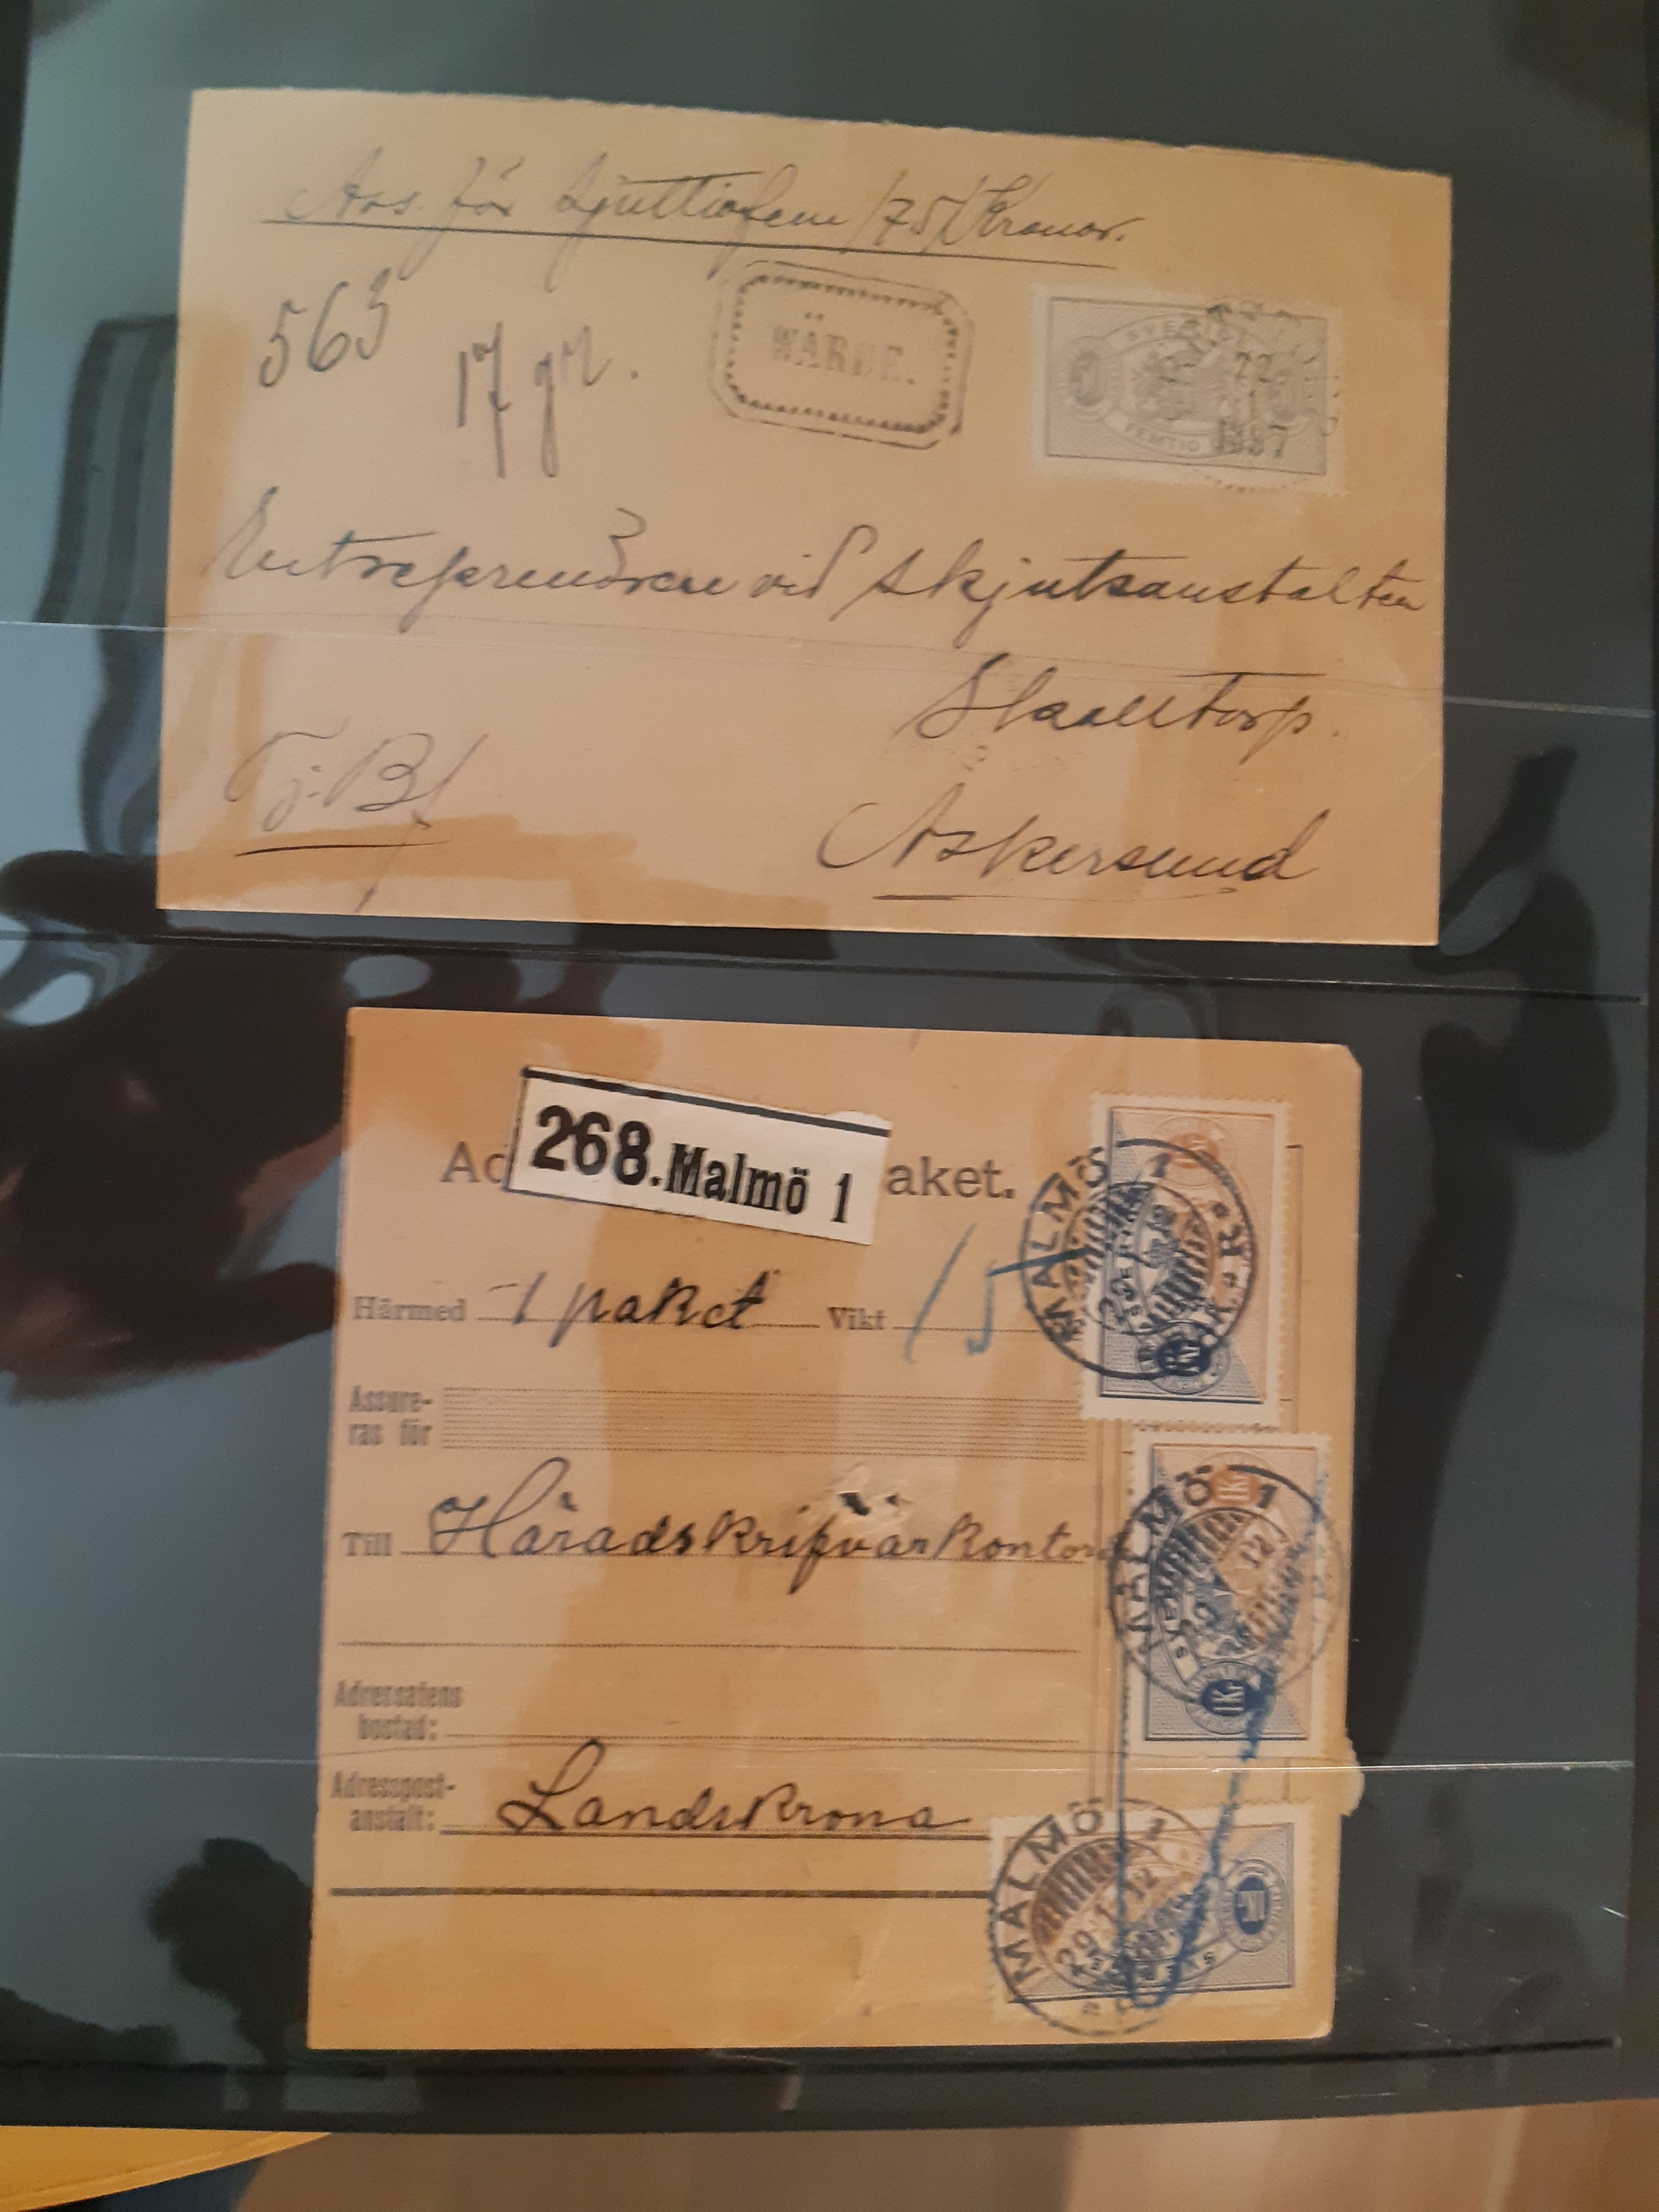 Ass. för Sjuttiofem /75/ Kronor.
563
17 gr.
WÄRDE.
SVERIGE
FEMTIO
22
1
1887
Entreprenören vid Skjutsanstalten
Askersund
Tj. Bf
268. Malmö 1
Ad aket.
Härmed 1 paket Vikt 15
Assure-
ras för
Till Häradskrifvarkontor
Adressatens
bostad:
Adresspost-
anstalt: Landskrona
MALMÖ 1
MALMÖ 1
1 KR
MALMÖ 1